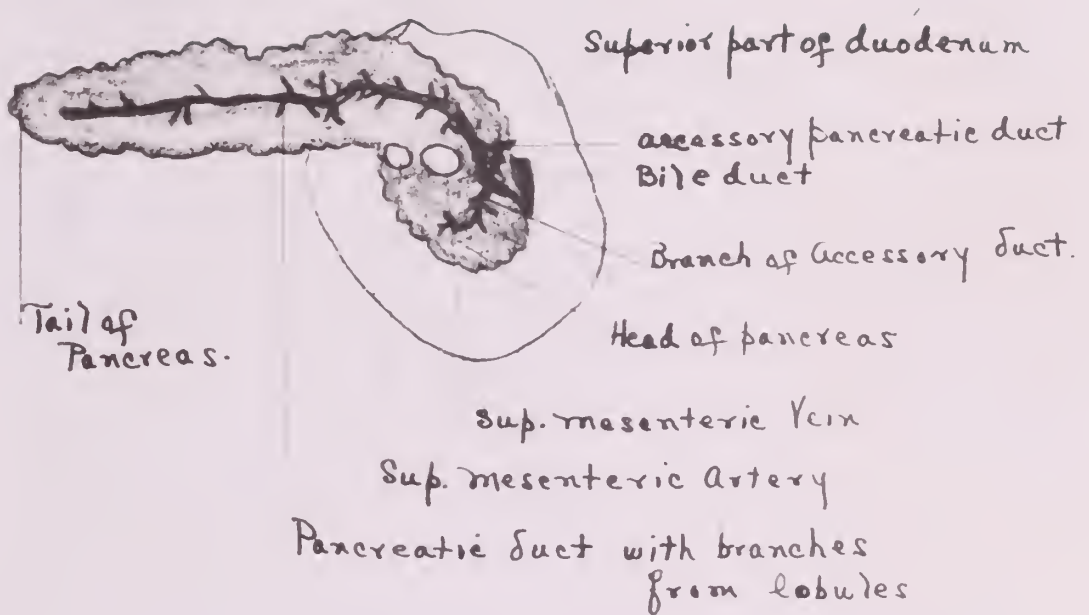 Superior part of duodenum
accessory pancreatic duct
Bile duct
Branch of accessory duct.
Tail of
Pancreas.
Head of pancreas
Sup. mesenteric Vein
Sup. mesenteric Artery
Pancreatic duct with branches
from lobules